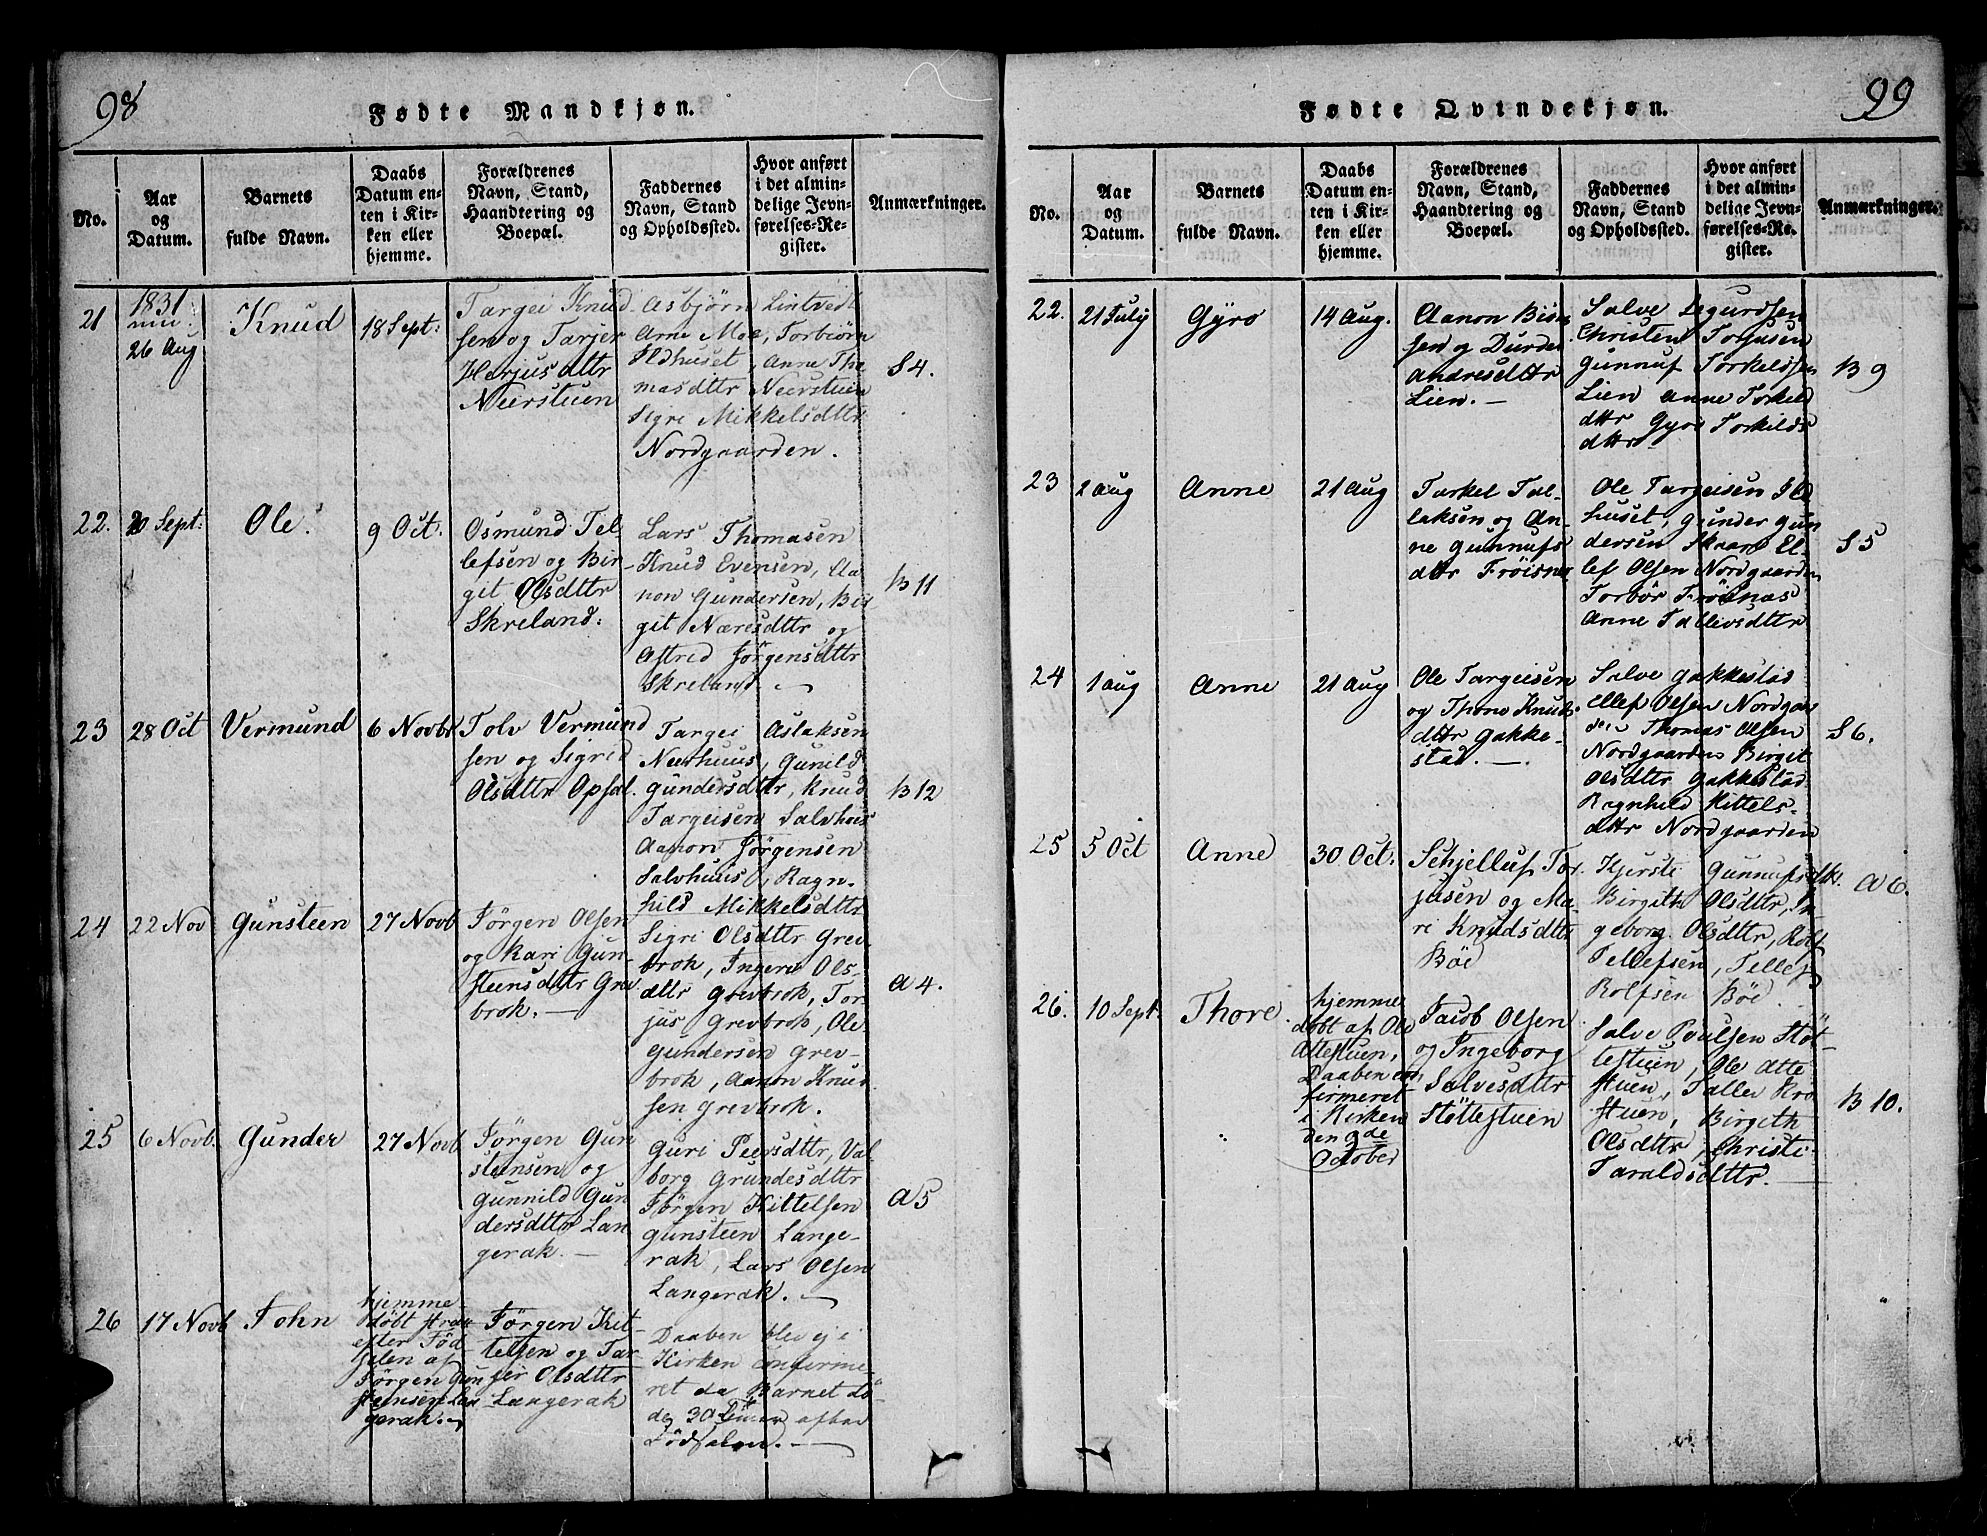 98
Fødte Mandkjøn.
No.
Aar
og
Datum.
Barnets
fulde Navn.
Daabs
Datum en-
ten i Kir-
ken eller
hjemme.
Forældrenes
Navn, Stand,
Haandtering og
Boepæl.
Faddernes
Navn, Stand
og Opholdssted.
Hvor anført
i det almin-
delige Jevn-
førelses-Re-
gister.
Anmærkninger.
21
1831
26 Aug
Knud
18 Sept:
Targei Knud
sen og Tarjer
Herjusdttr
Neerstuen
Asbjørn Lintvedt
Arne Moe, Torbiørn
Ildhuset, Anne Tho
masdttr Neerstuen
Sigri Mikkelsdttr
Nordgaarden.
S4.
22.
20 Sept:
Ole.
9 Oct.
Osmund Tel-
lefsen og Bir-
git Olsdttr
Skreland:
Lars Thomasen
Knud Evensen, Aa-
non Gundersen, Bir
git Næresdttr og
Astrid Jørgensdttr
Skreland. —
B11
23
28 Oct
Vermund
6 Novbr
Tolv Vermund
sen og Sigrid
Olsdttr Opsal.
Targei Aslaksen
Neerhuus, Gunild
Gundersdttr, Knud
Targeisen Salvhuus
Aanon Jørgensen
Salvhuus, Ragn-
hild Mikkelsdttr
B12
24
22 Nov
Gunsteen
27 Novb
Jørgen Olsen
og Kari Gun-
steensdttr Grev
brok. —
Sigri Olsdttr Grev
brok, Ingera Ols-
dttr Grevbrok, Tor
jus Grevbrok, Ole
Gundersen Grev-
brok, Aanon Knud
sen Grevbrok.
A4.
25
6 Novb.
Gunder
27 Novb
Jørgen Gun
stensen og
Gunnild Gun
dersdttr Lan
gerak. —
Guri Peersdttr, Val
borg Grundesdttr
Jørgen Kittelsen
Gunsteen Lange-
rak, Lars Olsen
Langerak. —
A5
26
17 Novb
John
hjemme-
døbt strax
efter Fød-
selen af
Jørgen Gun
stensen Lan
gerak. —
Jørgen Kit-
telsen og Tar
jer Olsdttr
Langerak
Daaben blev ej i
Kirken confirme
ret da Barnet dö
de 30 Timer efter
Födselen. —
99
Fødte Qvindekjøn.
No.
Aar
og
Datum.
Barnets
fulde Navn.
Daabs
Datum en-
ten i Kir-
ken eller
hjemme.
Forældrenes
Navn, Stand,
Haandtering og
Boepæl.
Faddernes
Navn, Stand
og Opholdssted.
Hvor anført
i det almin-
delige Jevn-
førelses-Re-
gister.
Anmærkninger.
22.
21 July
Gyro
14 Aug.
Aanon Biörn
sen og Durdei
Andresdttr
Lien. —
Salve Segurdsen
Christen Torjusen
Gunnuf Torkeldsen
Lien Anne Torkeld
dttr Gyro Torkilds
dttr
B 9
23
2 Aug
Anne
21 Aug
Tarkel Tal-
laksen og An-
ne Gunnufs
dttr Fröisnes
Ole Targeisen Ild
huset, Gunder Gun
dersen Skaar El-
lef Olsen Nordgaarden
Torbör Fröisnæs
Anne Tallevsdttr
S5
24
1 Aug
Anne
21 Aug
Ole Targeisen
og Thone Knuds
dttr Gakke-
stad. —
Salve Gakkestad
Ellef Olsen Nordgaar
den Thomas Olsen
Nordgaarden Birgit
Olsdttr Gakkestad
Ragnhild Kittels-
dttr Nordgaarden
S6.
25
5 Oct
Anne
30 Oct.
Schjelluf Tor
jusen og Ma-
ri Knudsdttr
Böe
Kjersti Gunnufsdttr.
Birgith Olsdttr, In
geborg Olsdttr, Rolf
Tellefsen, Tellef
Rolfsen Böe.
A6.
26.
10 Sept.
Thore
hjemme
döbt af Ole
Attestuen,
Daaben con
firmeret
i Kirken
den 9de
October
Jacob Olsen
og Ingeborg
Salvesdttr
Støttestuen
Salve Poulsen Støt-
testuen, Ole Atte
stuen, Salle Kro
stuen, Birgith
Olsdttr, Christi
Taraldsdttr. —
B 10.